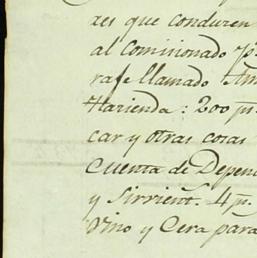 res que conduren
al Comisionado
rafe llamado
Hazienda: 200 p.
car y otras cosas
Cuenta de Depen
y Sirvient. 4 p.
Vino y Cera para